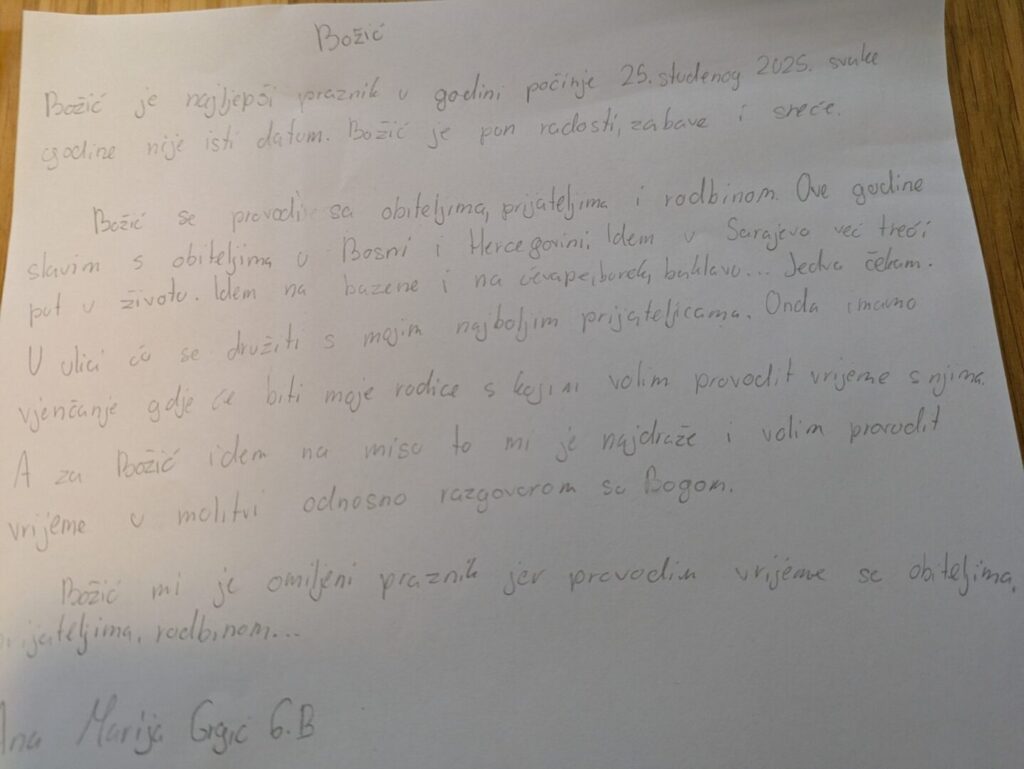 Božić
Božić je najljepši praznik u godini počinje 25. studenog 2025. svake
godine nije isti datum. Božić je pun radosti, zabave i sreće.
Božić se provodi sa obiteljima, prijateljima i rodbinom. Ove godine
slavim s obiteljima u Bosni i Hercegovini. Idem u Sarajevo već treći
put u životu. Idem na bazene i na ćevape, burek, baklavu... Jedva čekam.
U ulici ću se družiti s mojim najboljim prijateljicama. Onda imamo
vjenčanje gdje će biti moje rodice s kojim volim provodit vrijeme s njima.
A za Božić idem na misu to mi je najdraže i volim provodit
vrijeme u molitvi odnosno razgovorom sa Bogom.
Božić mi je omiljeni praznik jer provodim vrijeme sa obiteljima,
prijateljima, rodbinom...
Ana Marija Grgić 6.B